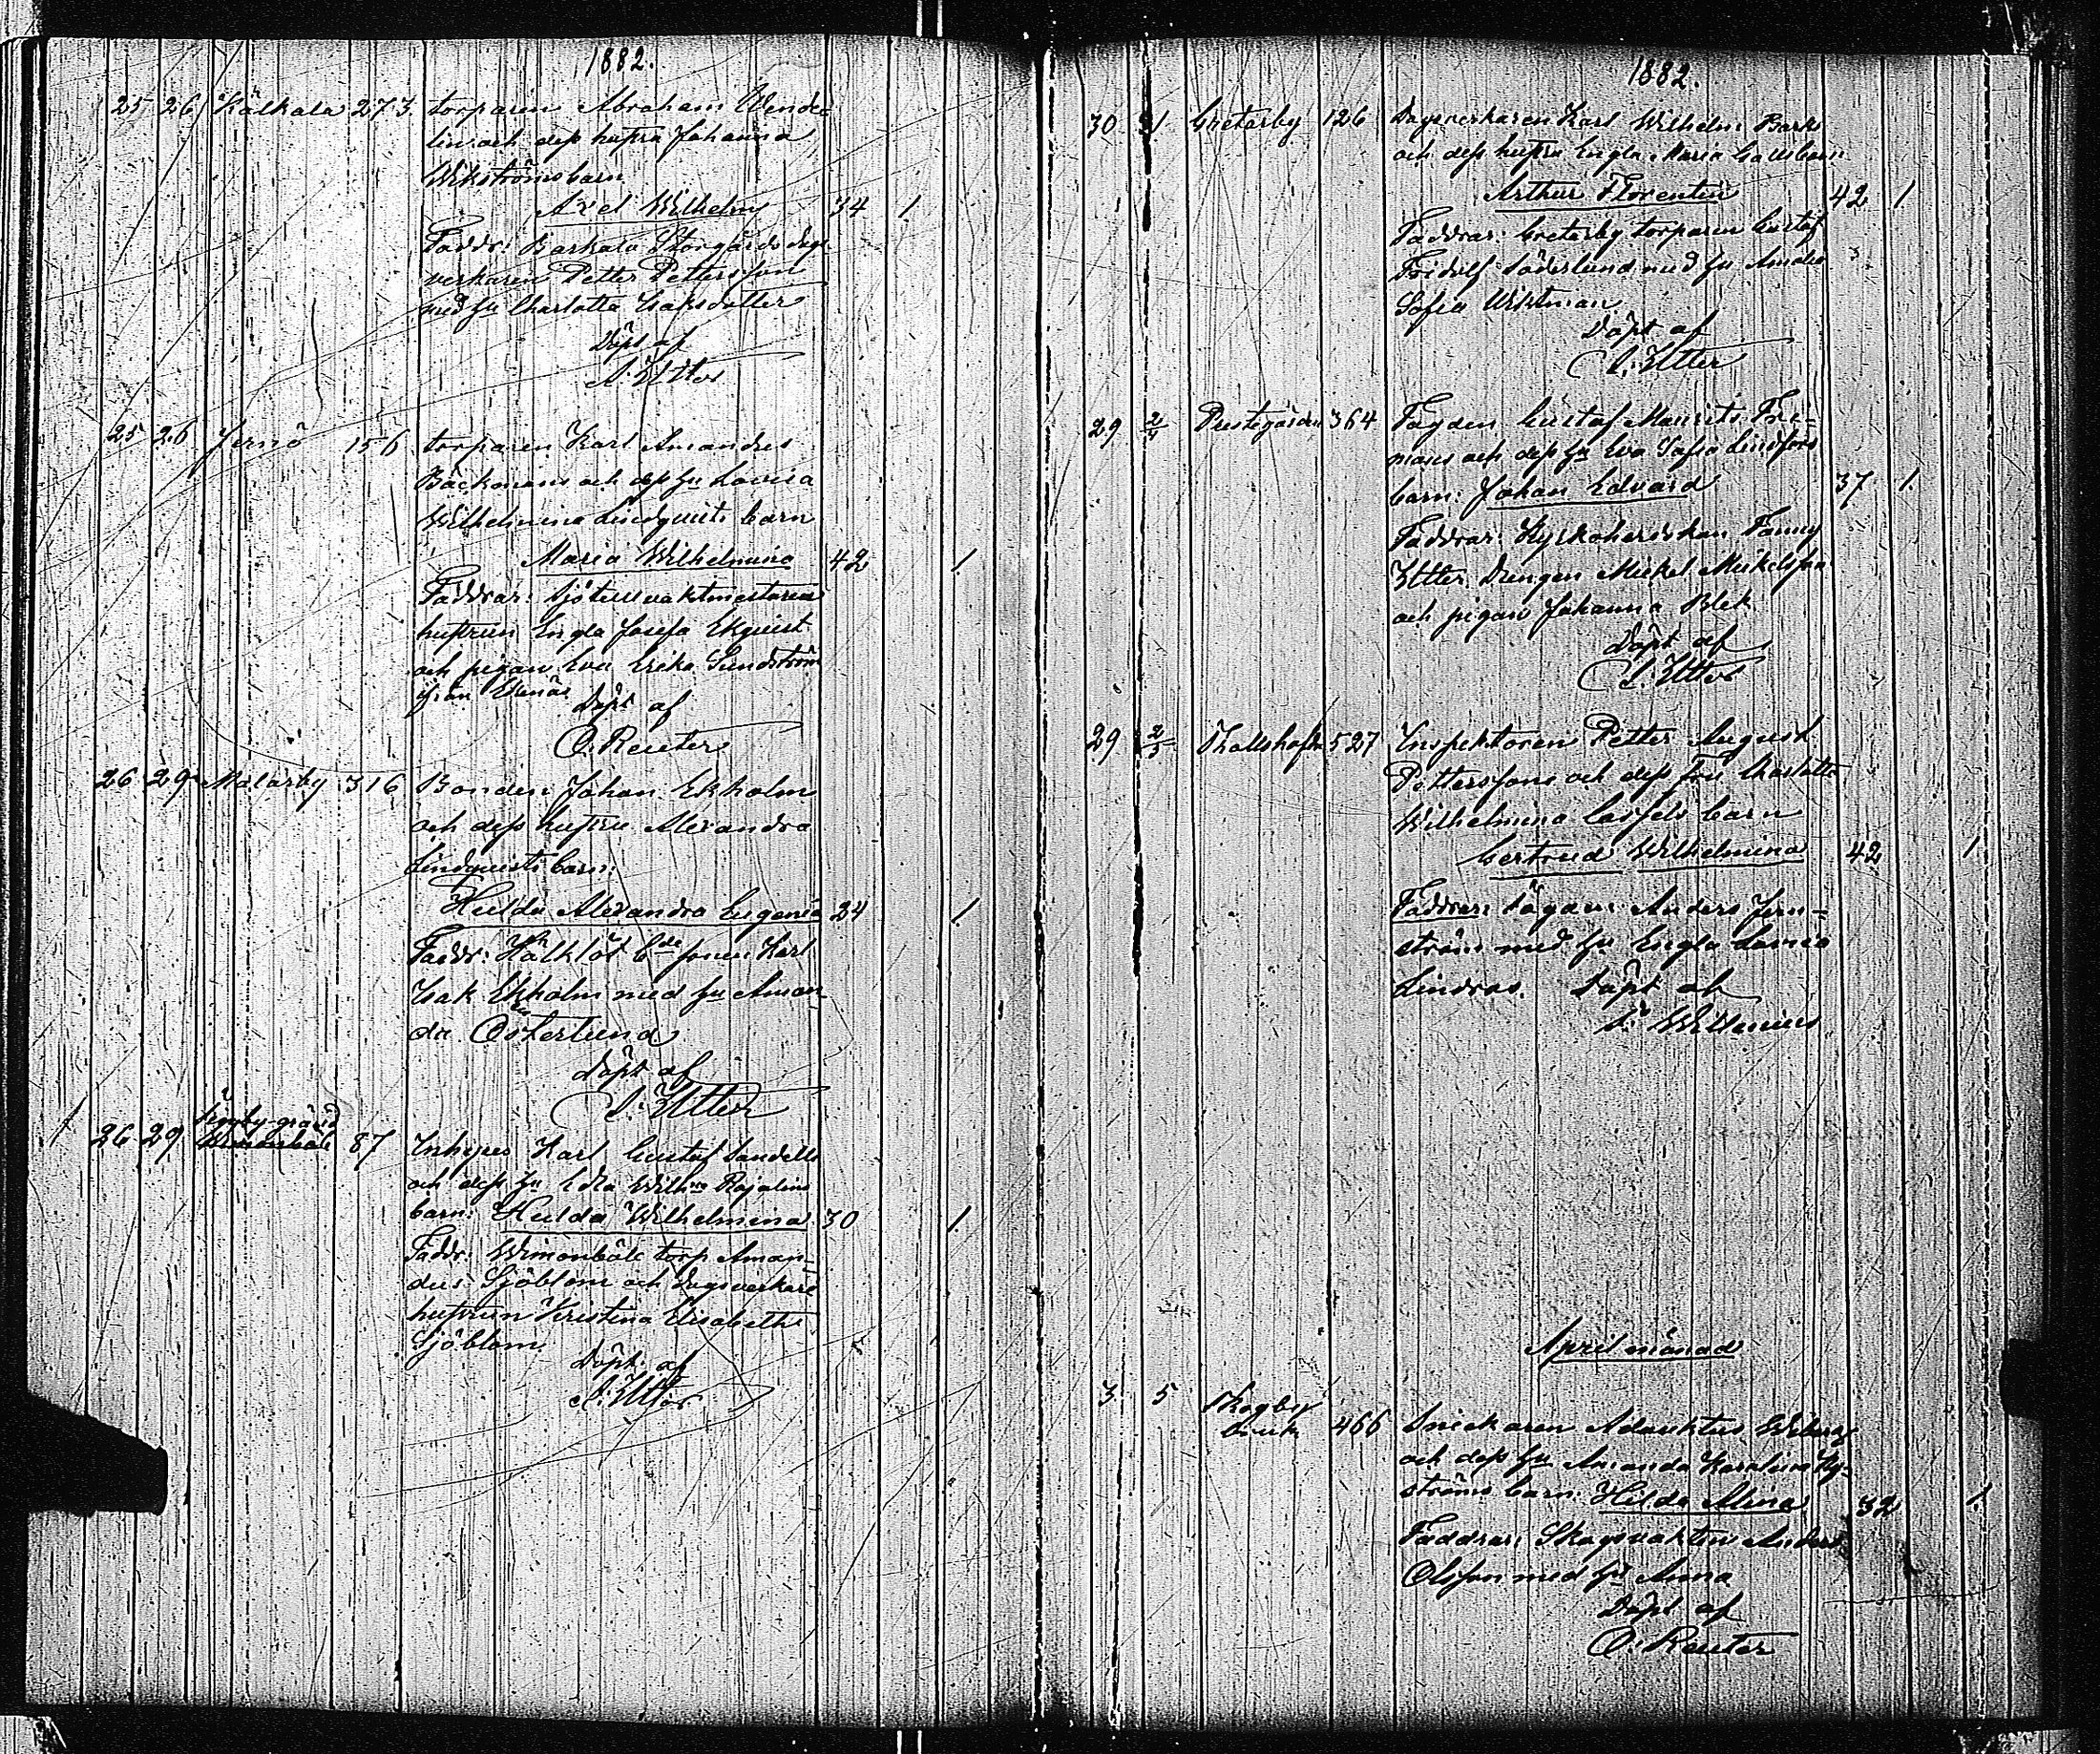 1882.
25 26 Kälkala 273. torparen Abraham Wende-
lin och dess hustru Johanna
Wikströms barn
Axel Wilhelm 34 1
Faddr: Baskala Storgårds dags-
verkaren Petter Pettersson
med hu Charlotta Isaksdotter
Döpt af
A. Utter
25 26 Jernö 156 torparen Karl Amandus
Bäckmans och dess hu Lovisa
Wilhelmina Lindqvists barn
Maria Wilhelmina 42 1
Faddrar: Sjötullvaktmästaren
hustrun Engla Josefa Ekqvist
och pigan Eva Erika Sundström
ifrån Ekenäs
Döpt af
O. Reuter
26 29 Malarby 316 Bonden Johan Ekholm
och dess hustru Alexandra
Lindqvists barn:
Hulda Alexandra Eugenia 24 1
Faddr: Bde sonen Karl
Isak Ekholm med hu Aman-
da Österlund
Döpt af
A. Utter
1 26 29 87 Inhyses Karl Gustaf Sandells
och dess hu Edla Wilhna Rosalins
barn: Hulda Wilhelmina 30 1
Faddr: Wimonböle torp. Aman-
dus Sjöblom och dagsverkare
hustrun Kristina Elisabeth
Sjöblom
Döpt af
A. Utter
1882.
30 1 Greterby 126 Dagsverkaren Karl Wilhelm Barks
och dess hustru Engla Maria barn
Arthur Florentin 42 1
Faddrar: Greterby torparen Gustaf
Fridolf Söderlund med hu Amalia
Sofia Wiktman
Döpt af
A. Utter
29 2/4 Prestegården 364 Fogden Gustaf Maurits Frei-
mans och dess hu Eva Sofia Lindfors
barn: Johan Edvard 37 1.
Faddrar: Kyrkoherdskan Fanny
Utter Drengen Mickel Mickelsson
och pigan Johanna Blek
Döpt af
A. Utter
29 2/5 527 Inspektoren Petter August
Petterssons och dess fru Charlotta
Wilhelmina barn
Gertrud Wilhelmina 42 1
Faddrar: Sågaren Anders Jern-
ström med hu Engla Lovisa
Lindroos. Döpt af
Wellenius
April månad
3 5 Skogby
bruk 466 Snickaren Adauktus Wiberg
och dess hu Amanda Karolina Ny-
ströms barn: Hilda Alina 32 1.
Faddrar: Skogsvakten Anders
Olsson med hu Anna
Döpt af
O. Reuter